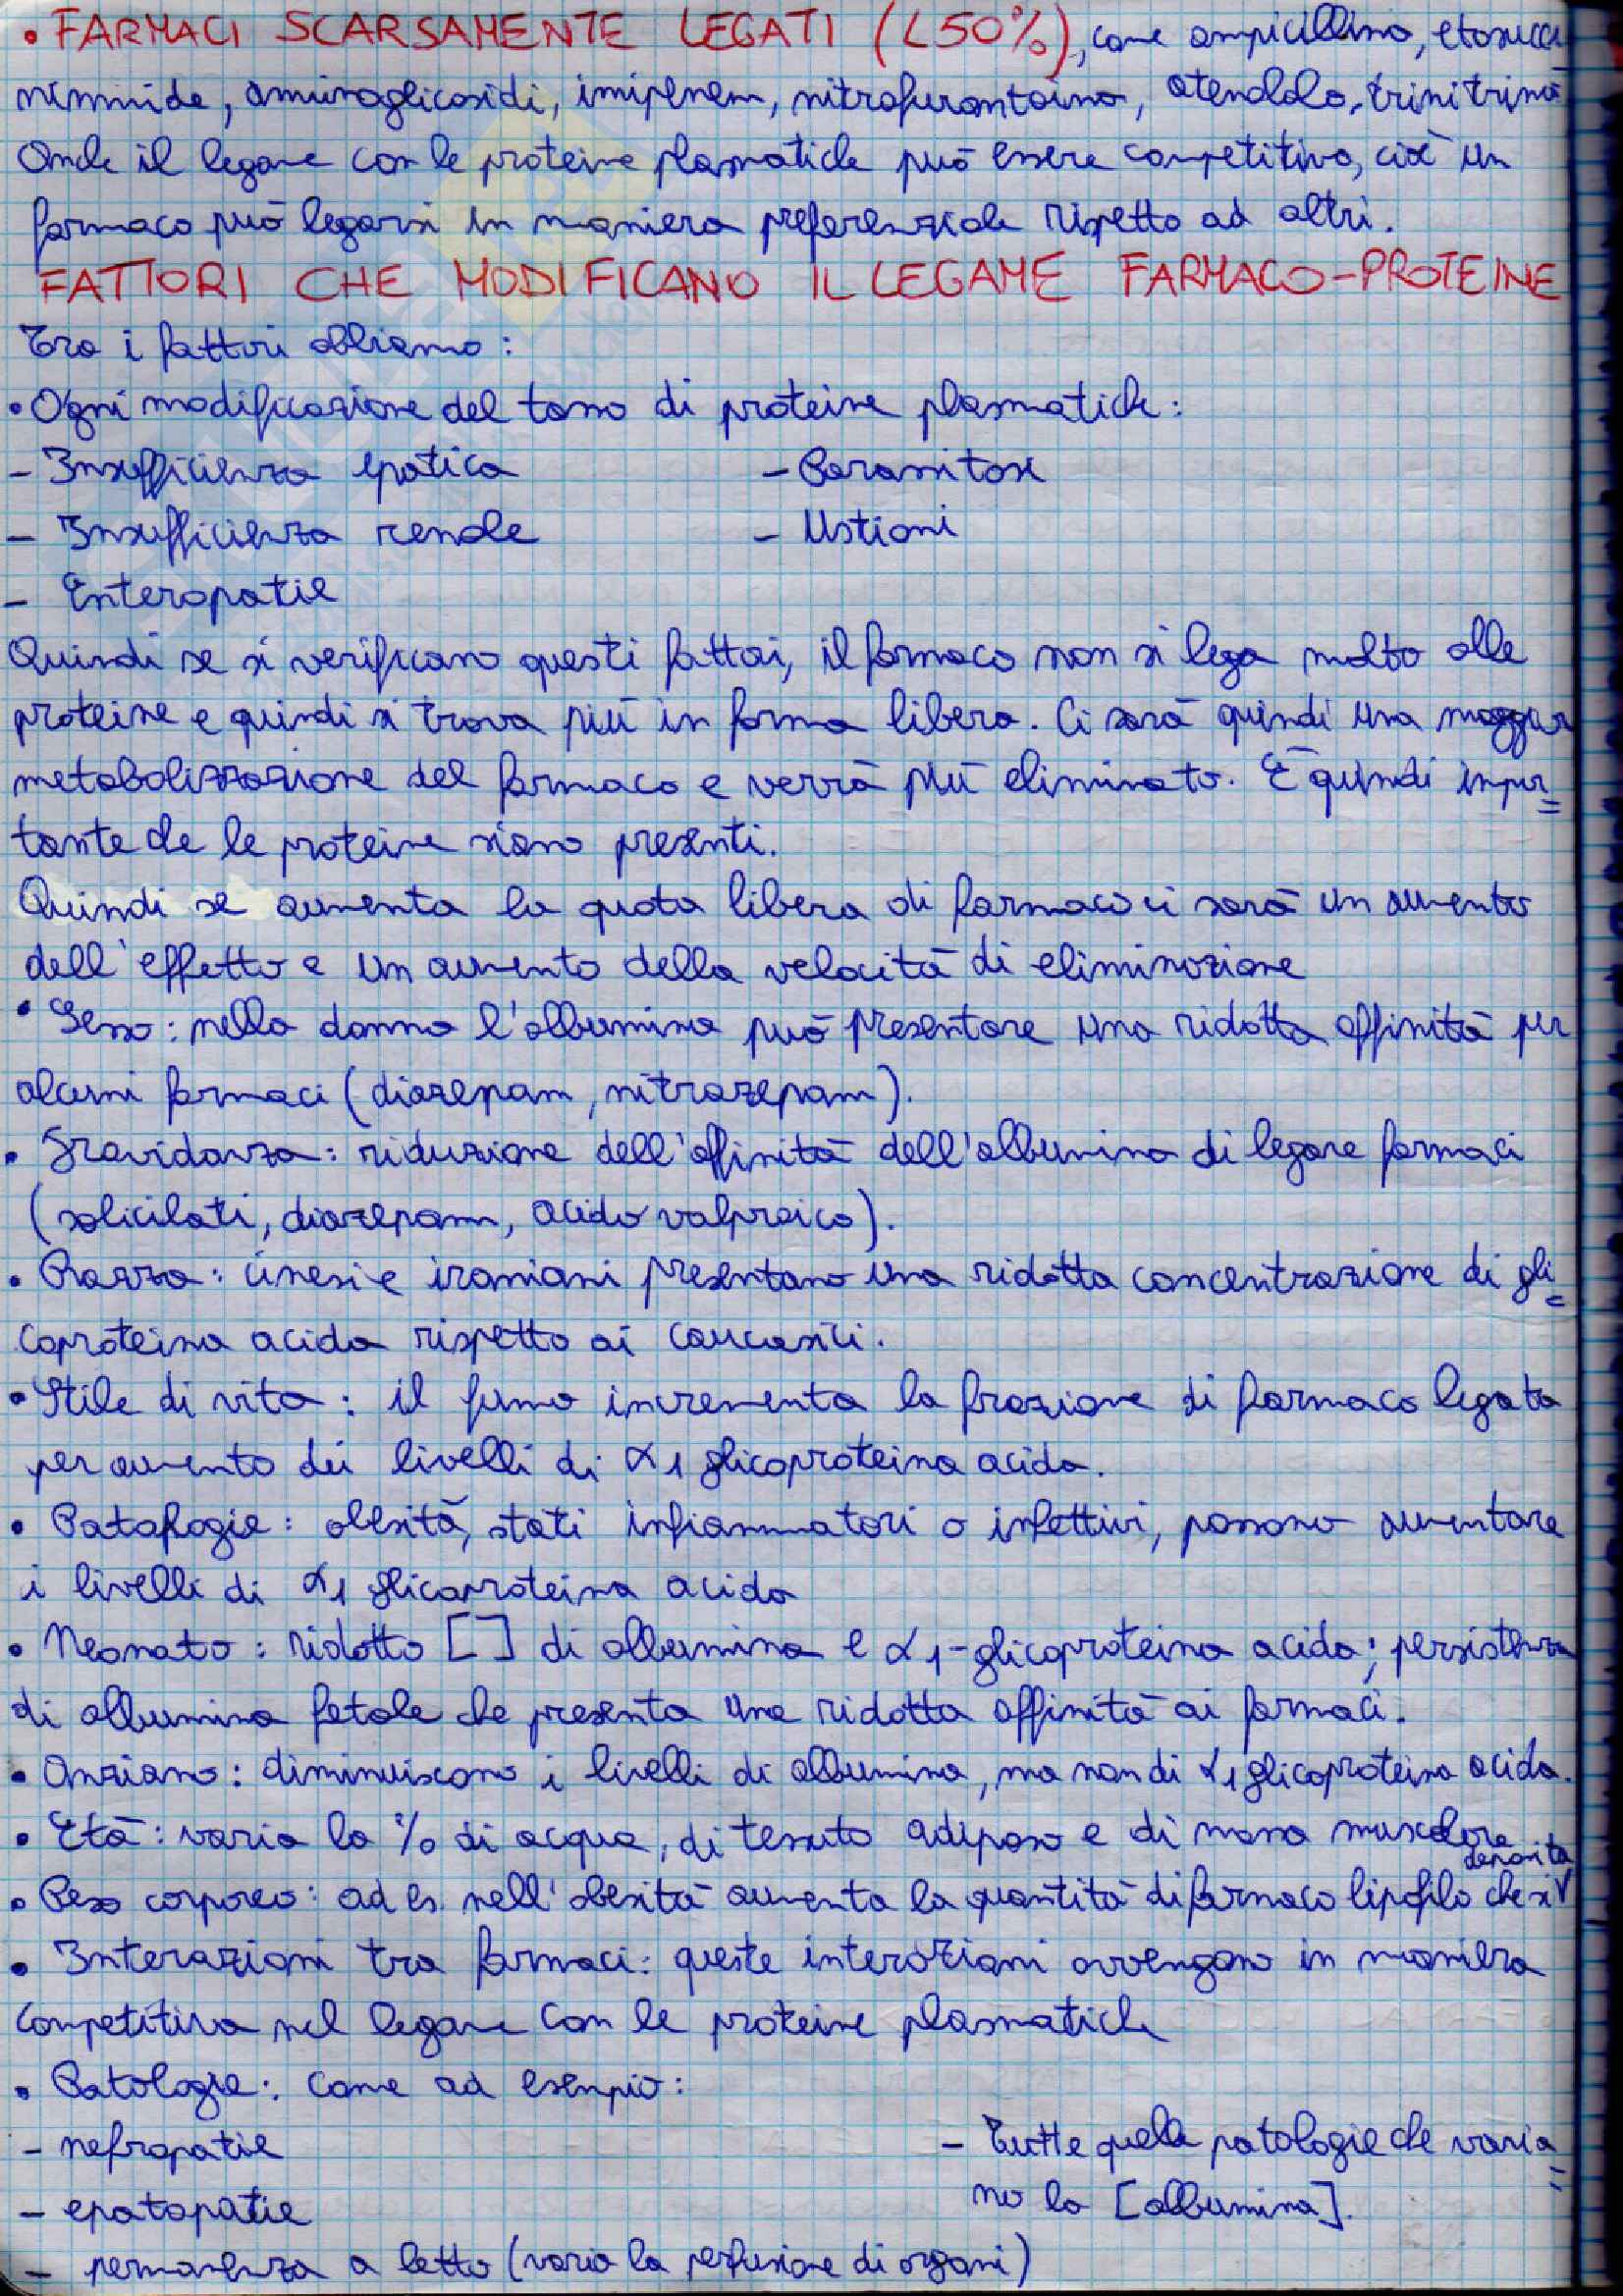 • FARMACI SCARSAMENTE LEGATI (<50%), come ampicillina, etosucci
nimmide, aminoglicosidi, imipenem, nitrofurantoina, atenololo, trinitrina
Anche il legame con le proteine plasmatiche può essere competitivo, cioè un
farmaco può legarsi in maniera preferenziale rispetto ad altri.
FATTORI CHE MODIFICANO IL LEGAME FARMACO-PROTEINE
Tra i fattori abbiamo:
• Ogni modificazione del tasso di proteine plasmatiche:
- Insufficienza epatica - Parassitosi
- Insufficienza renale - Ustioni
- Enteropatie
Quindi se si verificano questi fattori, il farmaco non si lega molto alle
proteine e quindi si trova più in forma libera. Ci sarà quindi una maggior
metabolizzazione del farmaco e verrà più eliminato. È quindi impor=
tante che le proteine siano presenti.
Quindi se aumenta la quota libera di farmaco ci sarà un aumento
dell'effetto e un aumento della velocità di eliminazione
• Sesso: nella donna l'albumina può presentare una ridotta affinità per
alcuni farmaci (diazepam, nitrazepam).
• Gravidanza: riduzione dell'affinità dell'albumina di legare farmaci
(salicilati, diazepam, acido valproico).
• Razza: cinesi e iraniani presentano una ridotta concentrazione di gli=
coproteina acida rispetto ai caucasici.
• Stile di vita: il fumo incrementa la frazione di farmaco legata
per aumento dei livelli di α1 glicoproteina acida.
• Patologie: obesità, stati infiammatori o infettivi, possono aumentare
i livelli di α1 glicoproteina acida
• Neonato: ridotto [ ] di albumina e α1-glicoproteina acida; persistenza
di albumina fetale che presenta una ridotta affinità ai farmaci.
• Anziano: diminuiscono i livelli di albumina, ma non di α1 glicoproteina acida.
• Età: varia la % di acqua, di tessuto adiposo e di massa muscolare
• Peso corporeo: ad es. nell'obesità aumenta la quantità di farmaco lipofilo che si deposita
• Interazioni tra farmaci: queste interazioni avvengono in maniera
competitiva nel legame con le proteine plasmatiche
• Patologie: come ad esempio:
- nefropatie - Tutte quelle patologie che varia=
- epatopatie no la [albumina].
- permanenza a letto (varia la perfusione di organi)